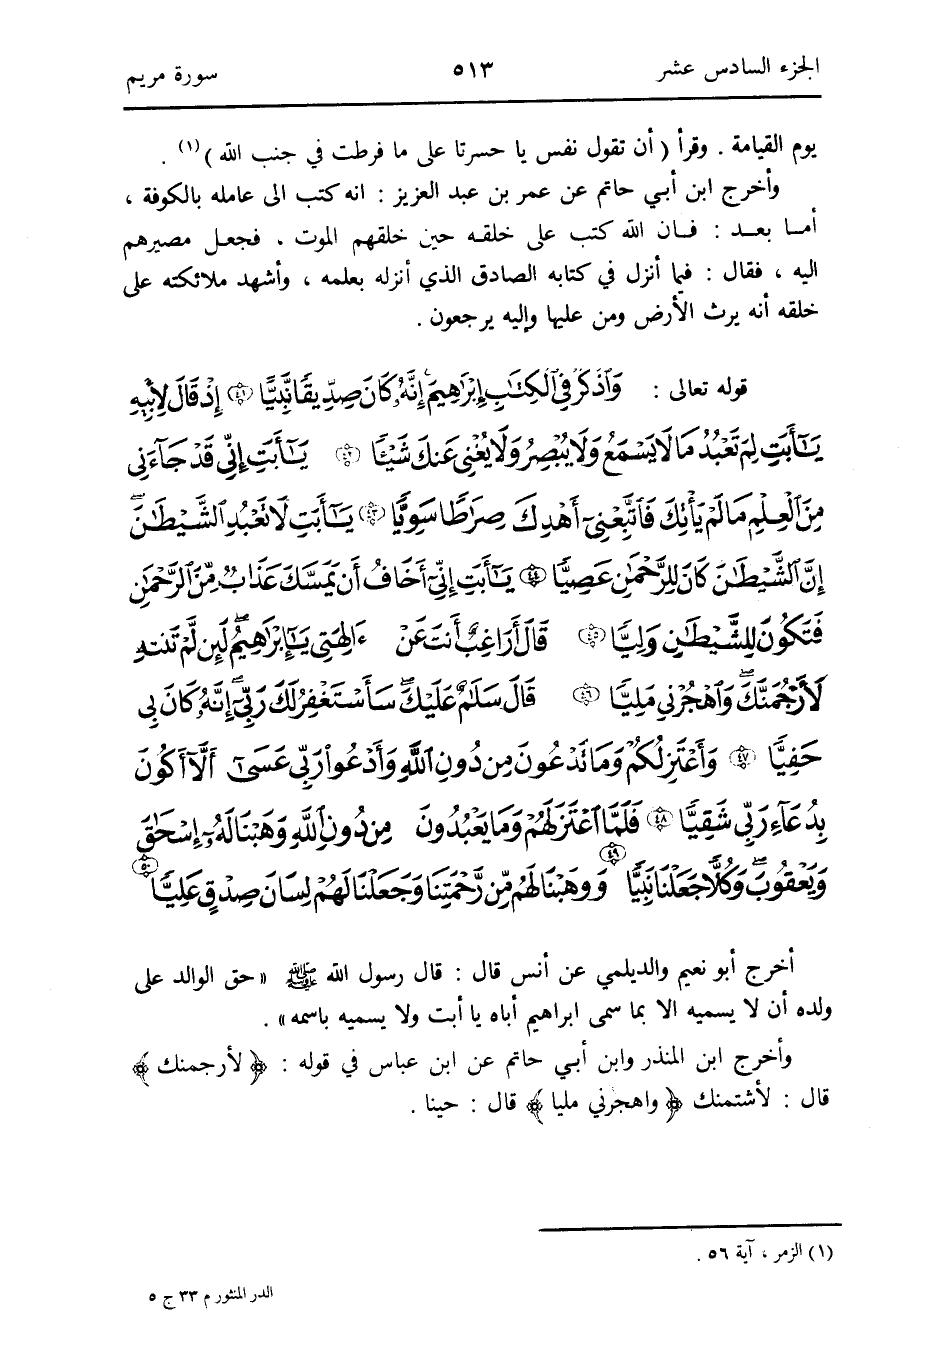 الجزء السادس عشر ٥١٣ سورة مريم
يوم القيامة . وقرأ ( أن تقول نفس يا حسرتا على ما فرطت في جنب الله ) (١) .
وأخرج ابن أبي حاتم عن عمر بن عبد العزيز : انه كتب الى عامله بالكوفة ،
أما بعد : فان الله كتب على خلقه حين خلقهم الموت ، فجعل مصيرهم
اليه ، فقال : فيما أنزل في كتابه الصادق الذي أنزله بعلمه ، وأشهد ملائكته على
خلقه أنه يرث الأرض ومن عليها وإليه يرجعون .
قوله تعالى : وَٱذْكُرْ فِى ٱلْكِتَٰبِ إِبْرَٰهِيمَ إِنَّهُۥ كَانَ صِدِّيقًا نَّبِيًّا ﴿٤١﴾ إِذْ قَالَ لِأَبِيهِ
يَٰٓأَبَتِ لِمَ تَعْبُدُ مَا لَا يَسْمَعُ وَلَا يُبْصِرُ وَلَا يُغْنِى عَنكَ شَيْـًٔا ﴿٤٢﴾ يَٰٓأَبَتِ إِنِّى قَدْ جَآءَنِى
مِنَ ٱلْعِلْمِ مَا لَمْ يَأْتِكَ فَٱتَّبِعْنِىٓ أَهْدِكَ صِرَٰطًا سَوِيًّا ﴿٤٣﴾ يَٰٓأَبَتِ لَا تَعْبُدِ ٱلشَّيْطَٰنَ ۖ
إِنَّ ٱلشَّيْطَٰنَ كَانَ لِلرَّحْمَٰنِ عَصِيًّا ﴿٤٤﴾ يَٰٓأَبَتِ إِنِّىٓ أَخَافُ أَن يَمَسَّكَ عَذَابٌ مِّنَ ٱلرَّحْمَٰنِ
فَتَكُونَ لِلشَّيْطَٰنِ وَلِيًّا ﴿٤٥﴾ قَالَ أَرَاغِبٌ أَنتَ عَنْ ءَالِهَتِى يَٰٓإِبْرَٰهِيمُ ۖ لَئِن لَّمْ تَنتَهِ
لَأَرْجُمَنَّكَ ۖ وَٱهْجُرْنِى مَلِيًّا ﴿٤٦﴾ قَالَ سَلَٰمٌ عَلَيْكَ ۖ سَأَسْتَغْفِرُ لَكَ رَبِّىٓ ۖ إِنَّهُۥ كَانَ بِى
حَفِيًّا ﴿٤٧﴾ وَأَعْتَزِلُكُمْ وَمَا تَدْعُونَ مِن دُونِ ٱللَّهِ وَأَدْعُوا۟ رَبِّى عَسَىٰٓ أَلَّآ أَكُونَ
بِدُعَآءِ رَبِّى شَقِيًّا ﴿٤٨﴾ فَلَمَّا ٱعْتَزَلَهُمْ وَمَا يَعْبُدُونَ مِن دُونِ ٱللَّهِ وَهَبْنَا لَهُۥٓ إِسْحَٰقَ
وَيَعْقُوبَ ۖ وَكُلًّا جَعَلْنَا نَبِيًّا ﴿٤٩﴾ وَوَهَبْنَا لَهُم مِّن رَّحْمَتِنَا وَجَعَلْنَا لَهُمْ لِسَانَ صِدْقٍ عَلِيًّا ﴿٥٠﴾
أخرج أبو نعيم والديلمي عن أنس قال : قال رسول الله ﷺ « حق الوالد على
ولده أن لا يسميه الا بما سمى ابراهيم أباه يا أبت ولا يسميه باسمه » .
وأخرج ابن المنذر وابن أبي حاتم عن ابن عباس في قوله : ﴿ لأرجمنك ﴾
قال : لأشتمنك ﴿ واهجرني مليا ﴾ قال : حينا .
(١) الزمر ، آية ٥٦ .
الدر المنثور م ٣٣ ج ٥